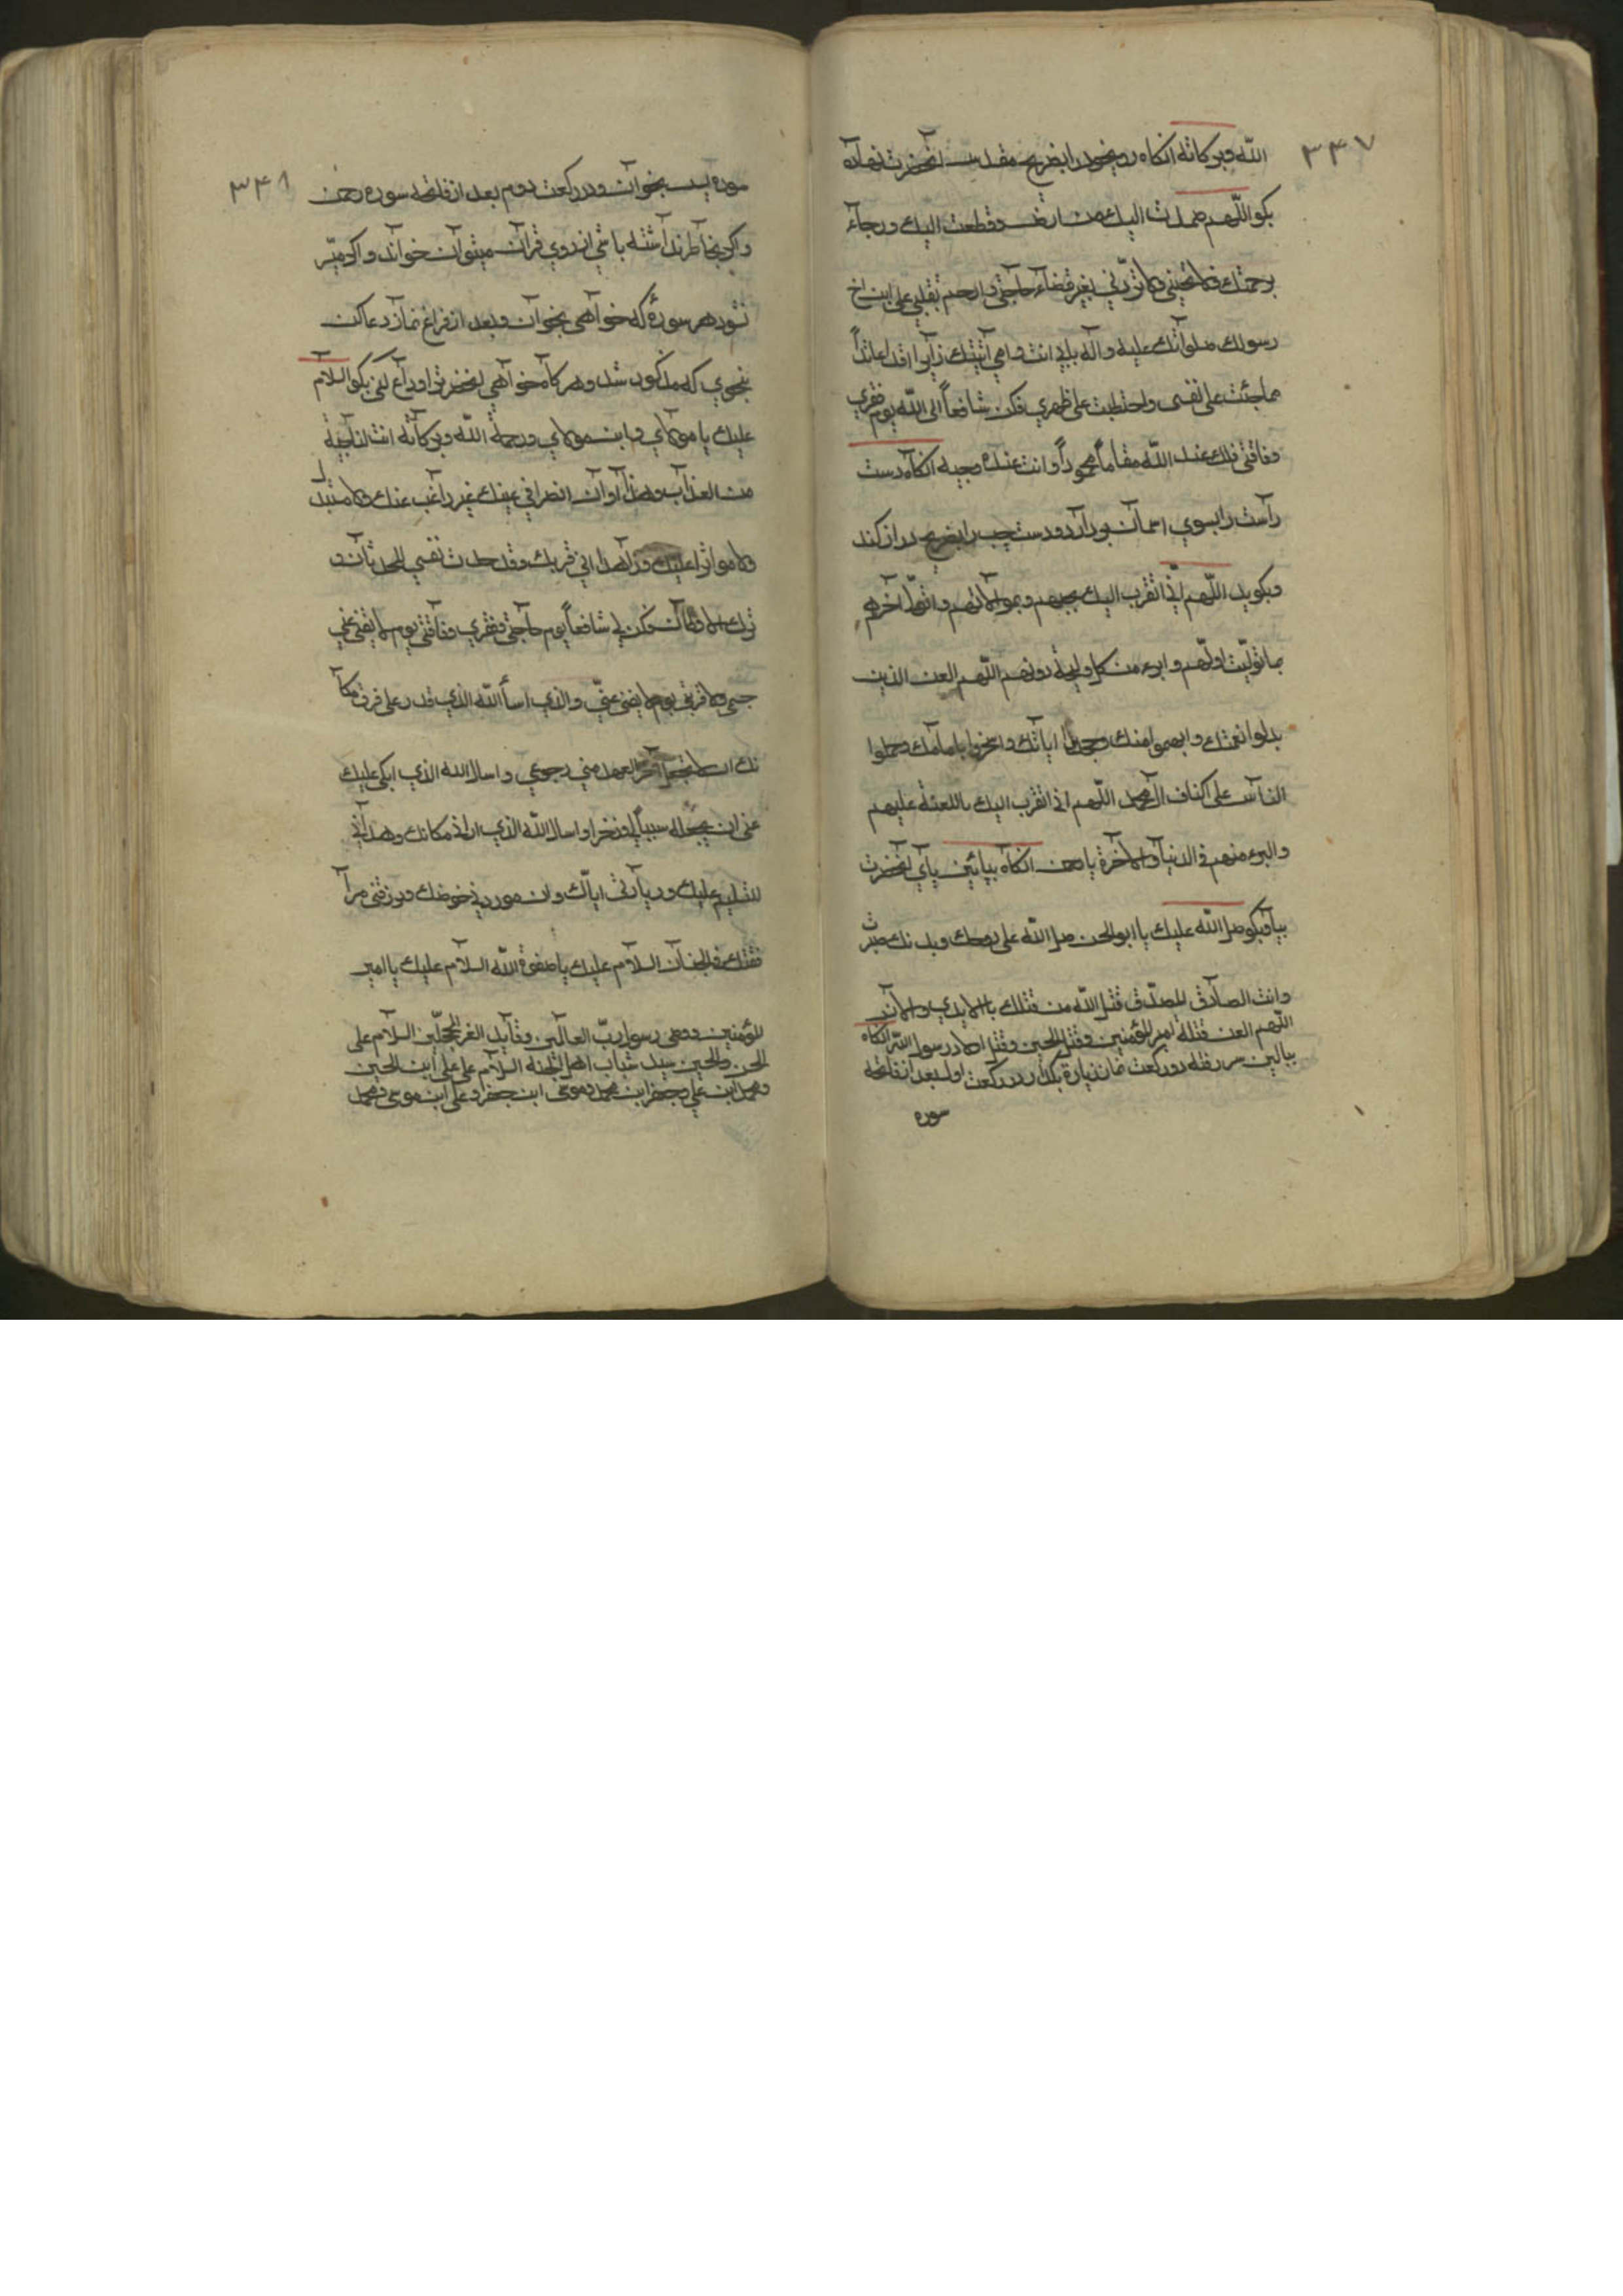 ۳۴۷
الله وبرکاته انکاه روی خود را بضریح مقدس انحضرت نهاده
بکو اللّهم صمدت الیك من ارض وقطعت الیك ورجاء
برحمتك فلا تخیبنی ولا تردّنی بغیر قضاء حاجتی وارحم تقلبی علی ابن اخ
رسولك صلواتك علیه واله بابی انت وامی اتیتك زایرا وافدا عائذاً
مما جنئت علی نفسی واحتطبت علی ظهری فکن شافعاً الی الله یوم فقری
وفاقتی فلك عند الله مقاماً محموداً وانت عنده وجیه انکاه دست
راست را بسوی اسمان بردارد ودست چپ را بضریح دراز کند
وبکوید اللّهم انّی اتقرب الیك بحبهم وبموالاتهم واتولّ اخرهم
بما تولّیت اولّهم وابرء من کل ولیجة دونهم اللّهم العن الذین
بدلوا نعمتك واتهموا نبیك وجحدوا ایاتك وسخروا بامامك وحملوا
الناس علی اکتاف ال محمد اللّهم انی اتقرب الیك باللعنة علیهم
والبرء منهم فی الدنیا والاخرة یا رحمن انکاه بپائین پای انحضرت
بیا وبکو صل الله علیك یا ابوالحسن صل الله علی روحك وبدنك صبرت
وانت الصادق المصدّق قتل الله من قتلك بالایدی والالسن
اللّهم العن قتلة امیر المؤمنین وقتل الحسین وقتل اولاد رسول اللّه انکاه
ببالین سر رفته دو رکعت نماز زیارة بکذار در رکعت اول بعد از فاتحه
سوره
۳۴۸
سوره یس بخوان ودر رکعت دوم بعد از فاتحه سوره رحمن
واکر بخاطر نداشته باشی از روی قران میتوان خواند واکر میسّر
نشود هر سورهٔ که خواهی بخوان وبعد از فراغ نماز دعا کن
بنحوی که مذکور شد وهر کاه خواهی انحضرت را وداع کنی بکو السلام
علیك یا مولای وابن مولای ورحمة الله وبرکاته انت لنا جنة
من العذاب وهذا اوان انصرافی عنك غیر راغب عنك ولا مستبدل
ولا موثرا علیك ولا زاهدا فی قربك وقد جدت نفسی للحدثان و
ترك الاوطان فکن لی شافعاً یوم حاجتی وفقری وفاقتی یوم لا یغنی عنی
حمیمی ولا قریبی یوم لا یغنی عنّی والذی اسأ الله الذی قدر علی فراق مکا
نك ان لا تجعل اخر العهد منی رجوعی واسال الله الذی ابکی علیك
عینی ان یجعله سبباً لی وذخرا واسال الله الذی ارانی مکانك وهدانی
للتسلیم علیك وزیارتی ایاك وان یوردنی حوضك ویرزقنی مرا
فقتك فی الجنان السلام علیك یا صفوة الله السلام علیك یا امیر
المؤمنین ووصی رسول ربّ العالمین وقاید الغر المحجلّین السلام علی
الحسن والحسین سید شباب اهل الجنة السلام علی علی ابن الحسین
ومحمد ابن علی وجعفر ابن محمد وموسی ابن جعفر وعلی ابن موسی ومحمد